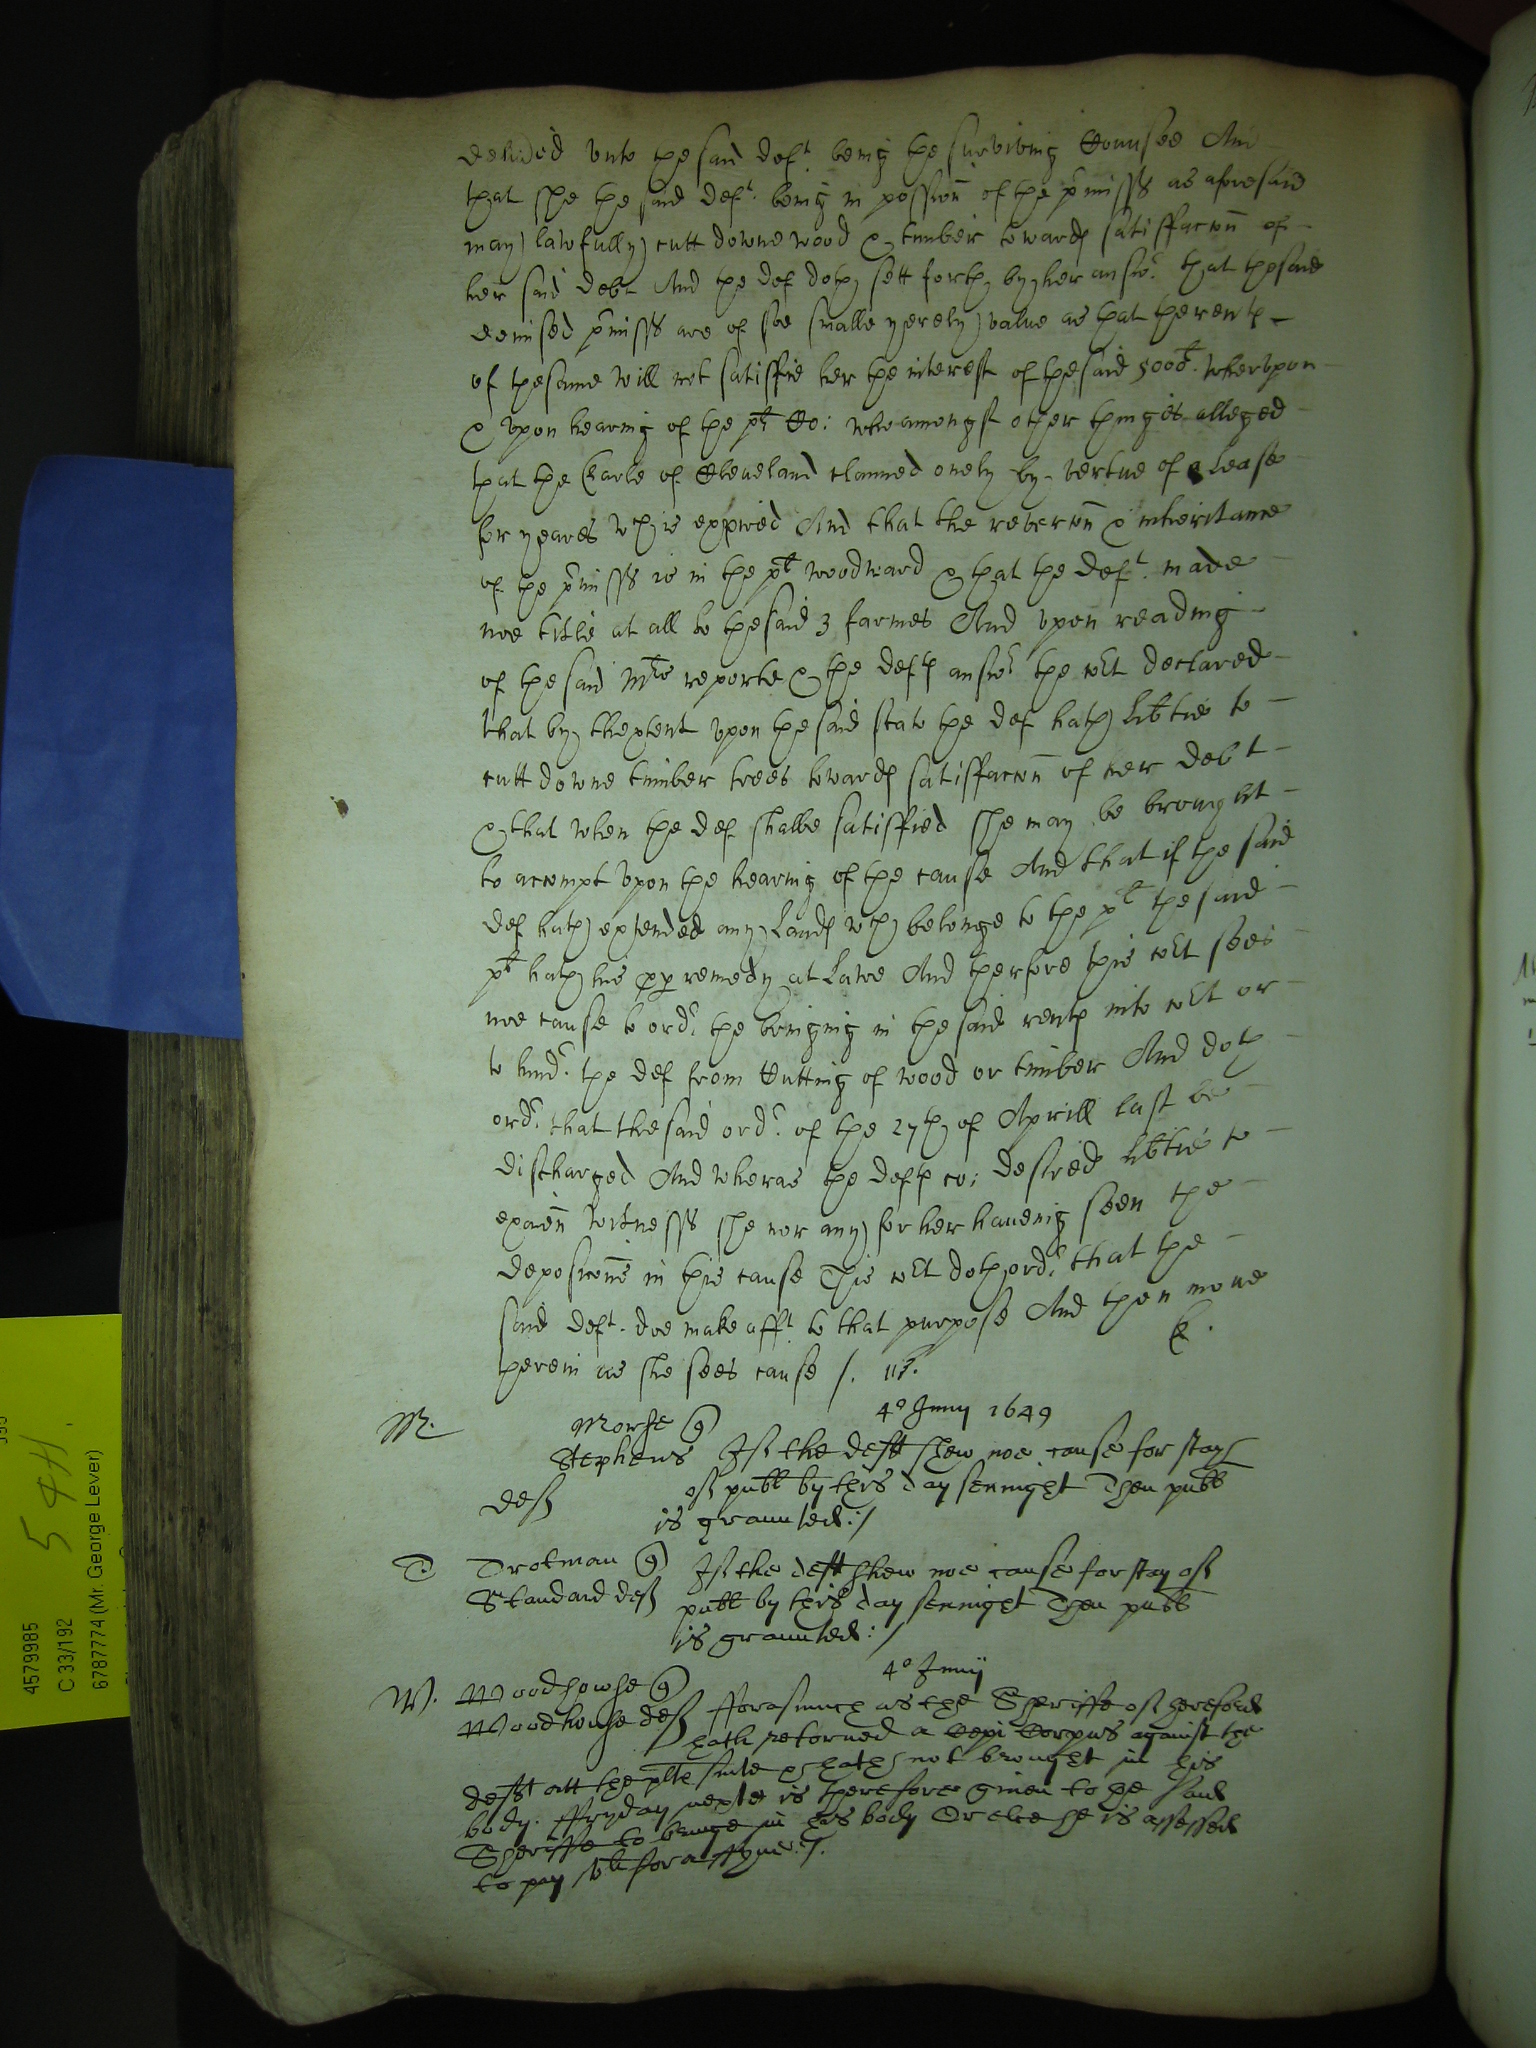 unto the said deft. being the surviving Connsee And
that she the said deft. being in possion of the pmisss as aforesaid
may lawfully cutt downe wood & timber towards satisfaccon of
her said debt And the def doth sett forth by her answr. that the said
demised pmisss are of soe smalle yerely value as that the rents
of the same will not satisfie her the interest of the said 5000l. Wherupon
& upon hearing of the plt Co: who amongst other things alleged
that the Earle of Cleveland claimed onely by vertue of a Lease
for yeares wch is expired And that the revercon & inheritance
of the pmisss is in the plt Woodward & that the deft. made
noe title at all to the said 3 farmes And upon reading
of the said Mrs reporte & the defts answr the Cort declared
that by thextent upon the said statt the def hath libtie to
cutt downe timber trees towards satisfaccon of her debt
& that when the def shalbe satisfied she may be brought
to accompt upon the hearing of the cause And that if the said
def hath extended any Lands wch belonge to the plt the said
plt hath his pp remedy at Lawe And therfore this Cort sees
noe cause to ordr. the bringing in the said rents into Cort or
to hindr. the def from Cutting of wood or timber And doth
ordr. that the said ordr. of the 27th of Aprill last be
discharged And wheras the defts co: desired libtie to
exaien witnesss she nor any for her haveing seen the
deposicons in this cause This Cort doth ordr. that the
said deft. doe make afft. to that purpose And then move
therein as she sees cause /.
4o Junij 1649
M. Morse q
Stephens If the deft shew noe cause for stay
def of publ by this day sennight Then publ
is graunted:/
T Trotman q If the deft shew noe cause for stay of
Standard def publ by this day sennight Then publ
is graunted:/
4o Junij
W. Woodhowse q
Woodhouse def fforasmuch as the Sheriffe of Hereford
hath retorned a Cepi Corpus against the
deft att the plts suite & hath not brought in his
body. ffryday nexte is therefore given to he said
Sheriffe to bringe in his body Or else he is assessed
to pay vli for a ffyne:/.
4579985
C 33/192
6787774 (Mr. George Lever)